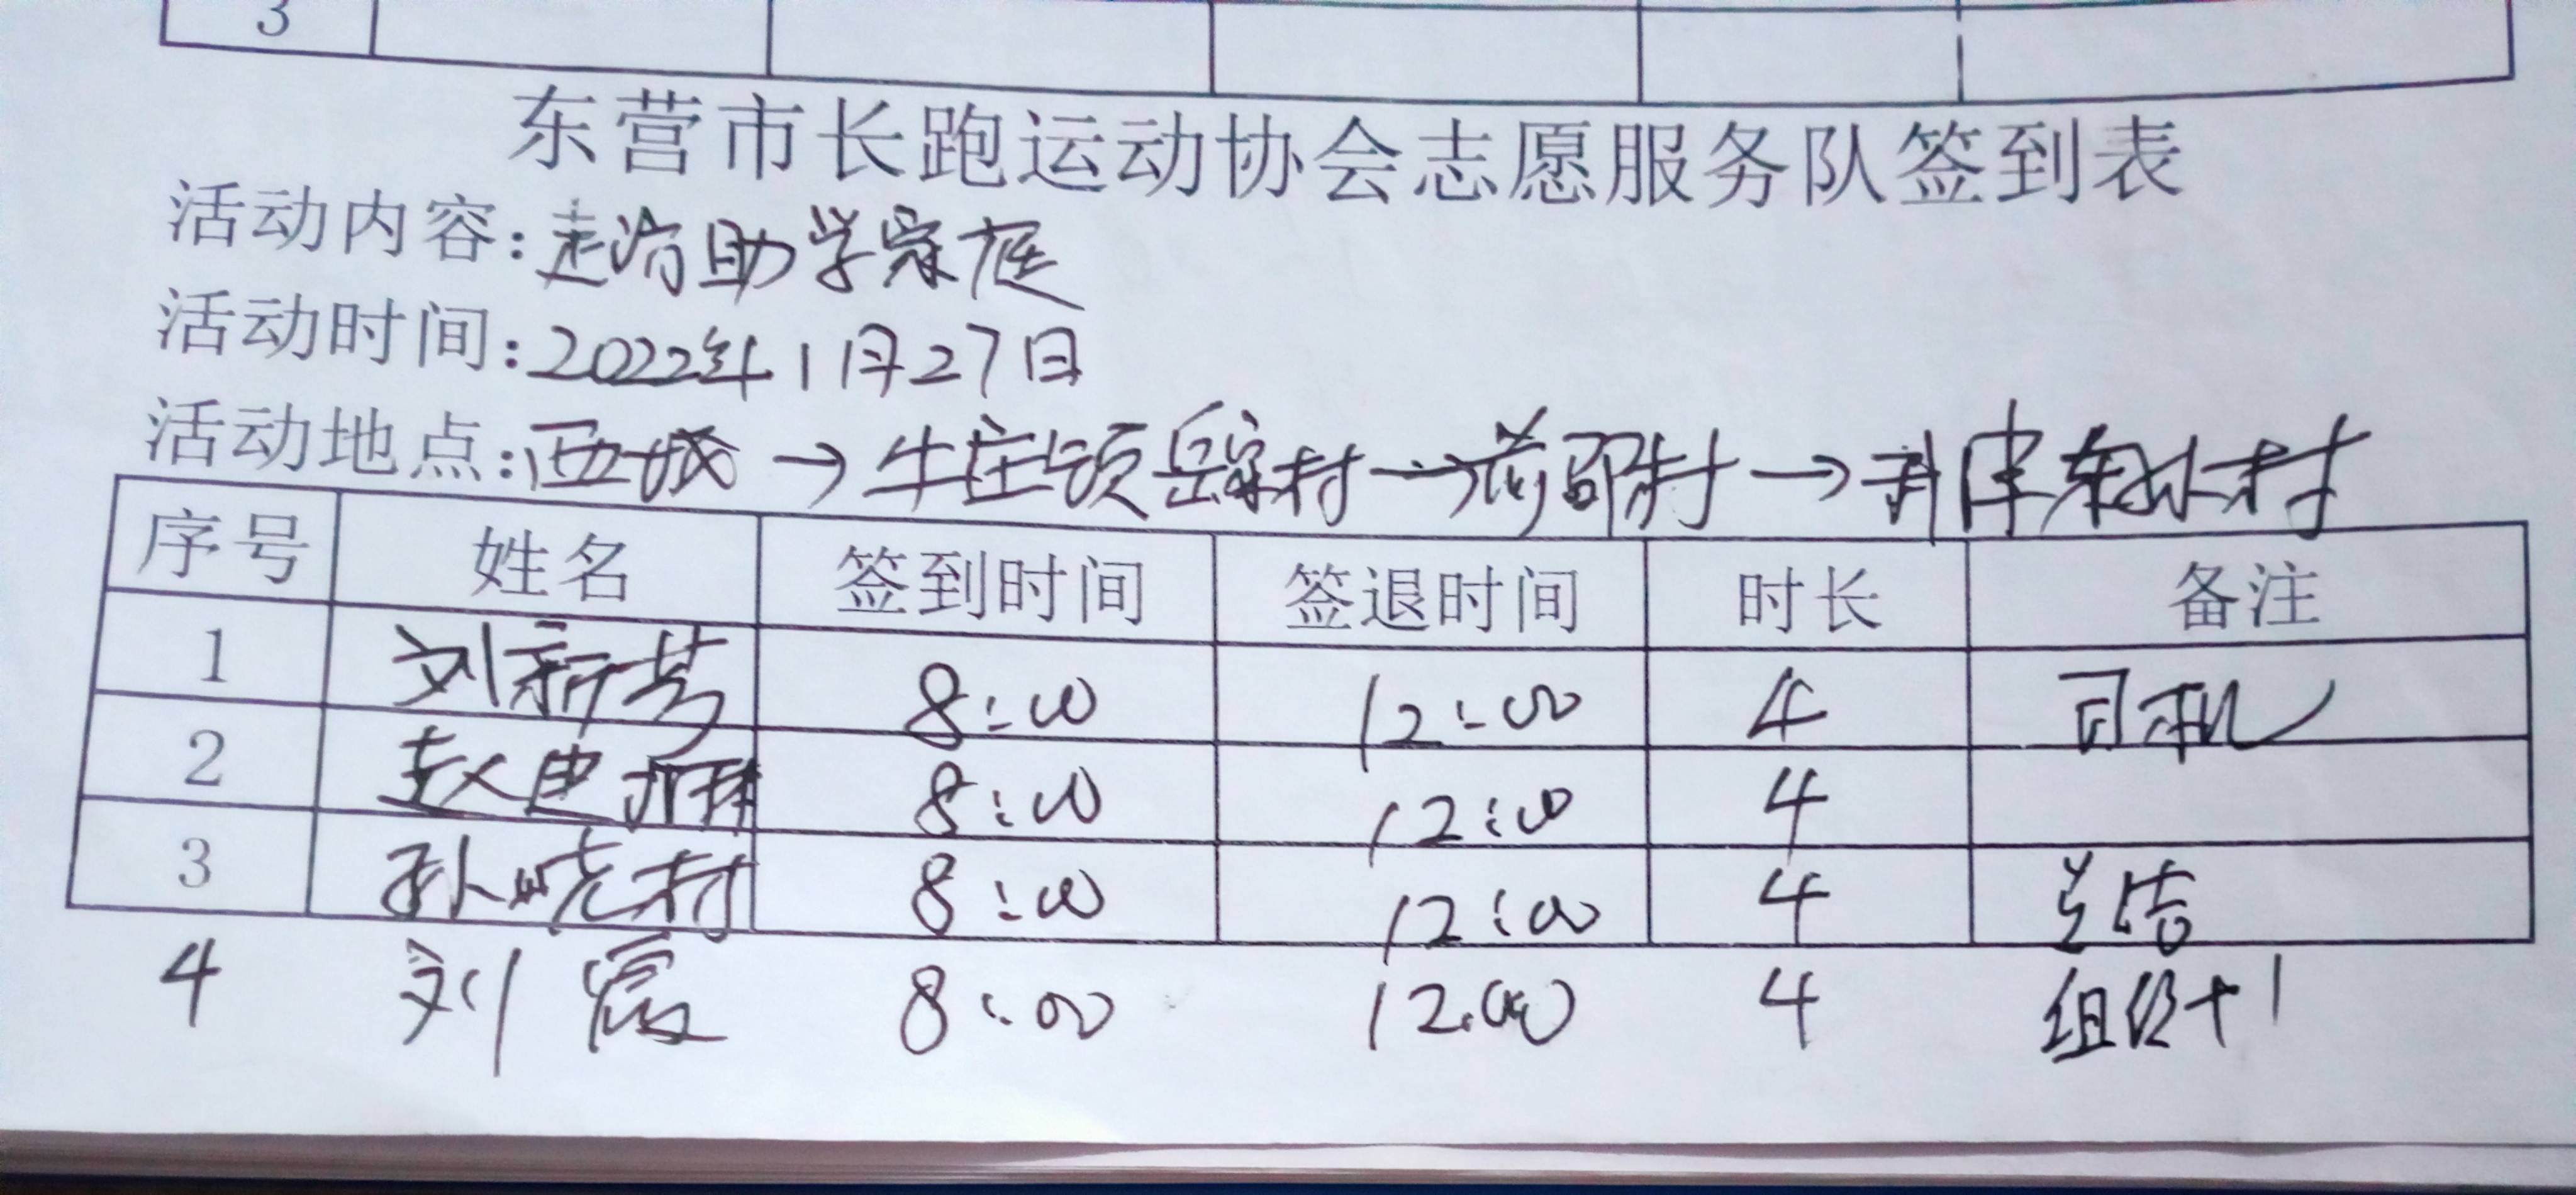 3
东营市长跑运动协会志愿服务队签到表
活动内容:走访助学家庭
活动时间:2022年1月27日
活动地点:西城→牛庄镇岳家村→前邵村→利津村
序号 姓名 签到时间 签退时间 时长 备注
1 刘新芳 8:00 12:00 4 司机
2 赵 8:00 12:00 4
3 孙晓村 8:00 12:00 4 总结
4 刘霞 8:00 12:00 4 组织+1